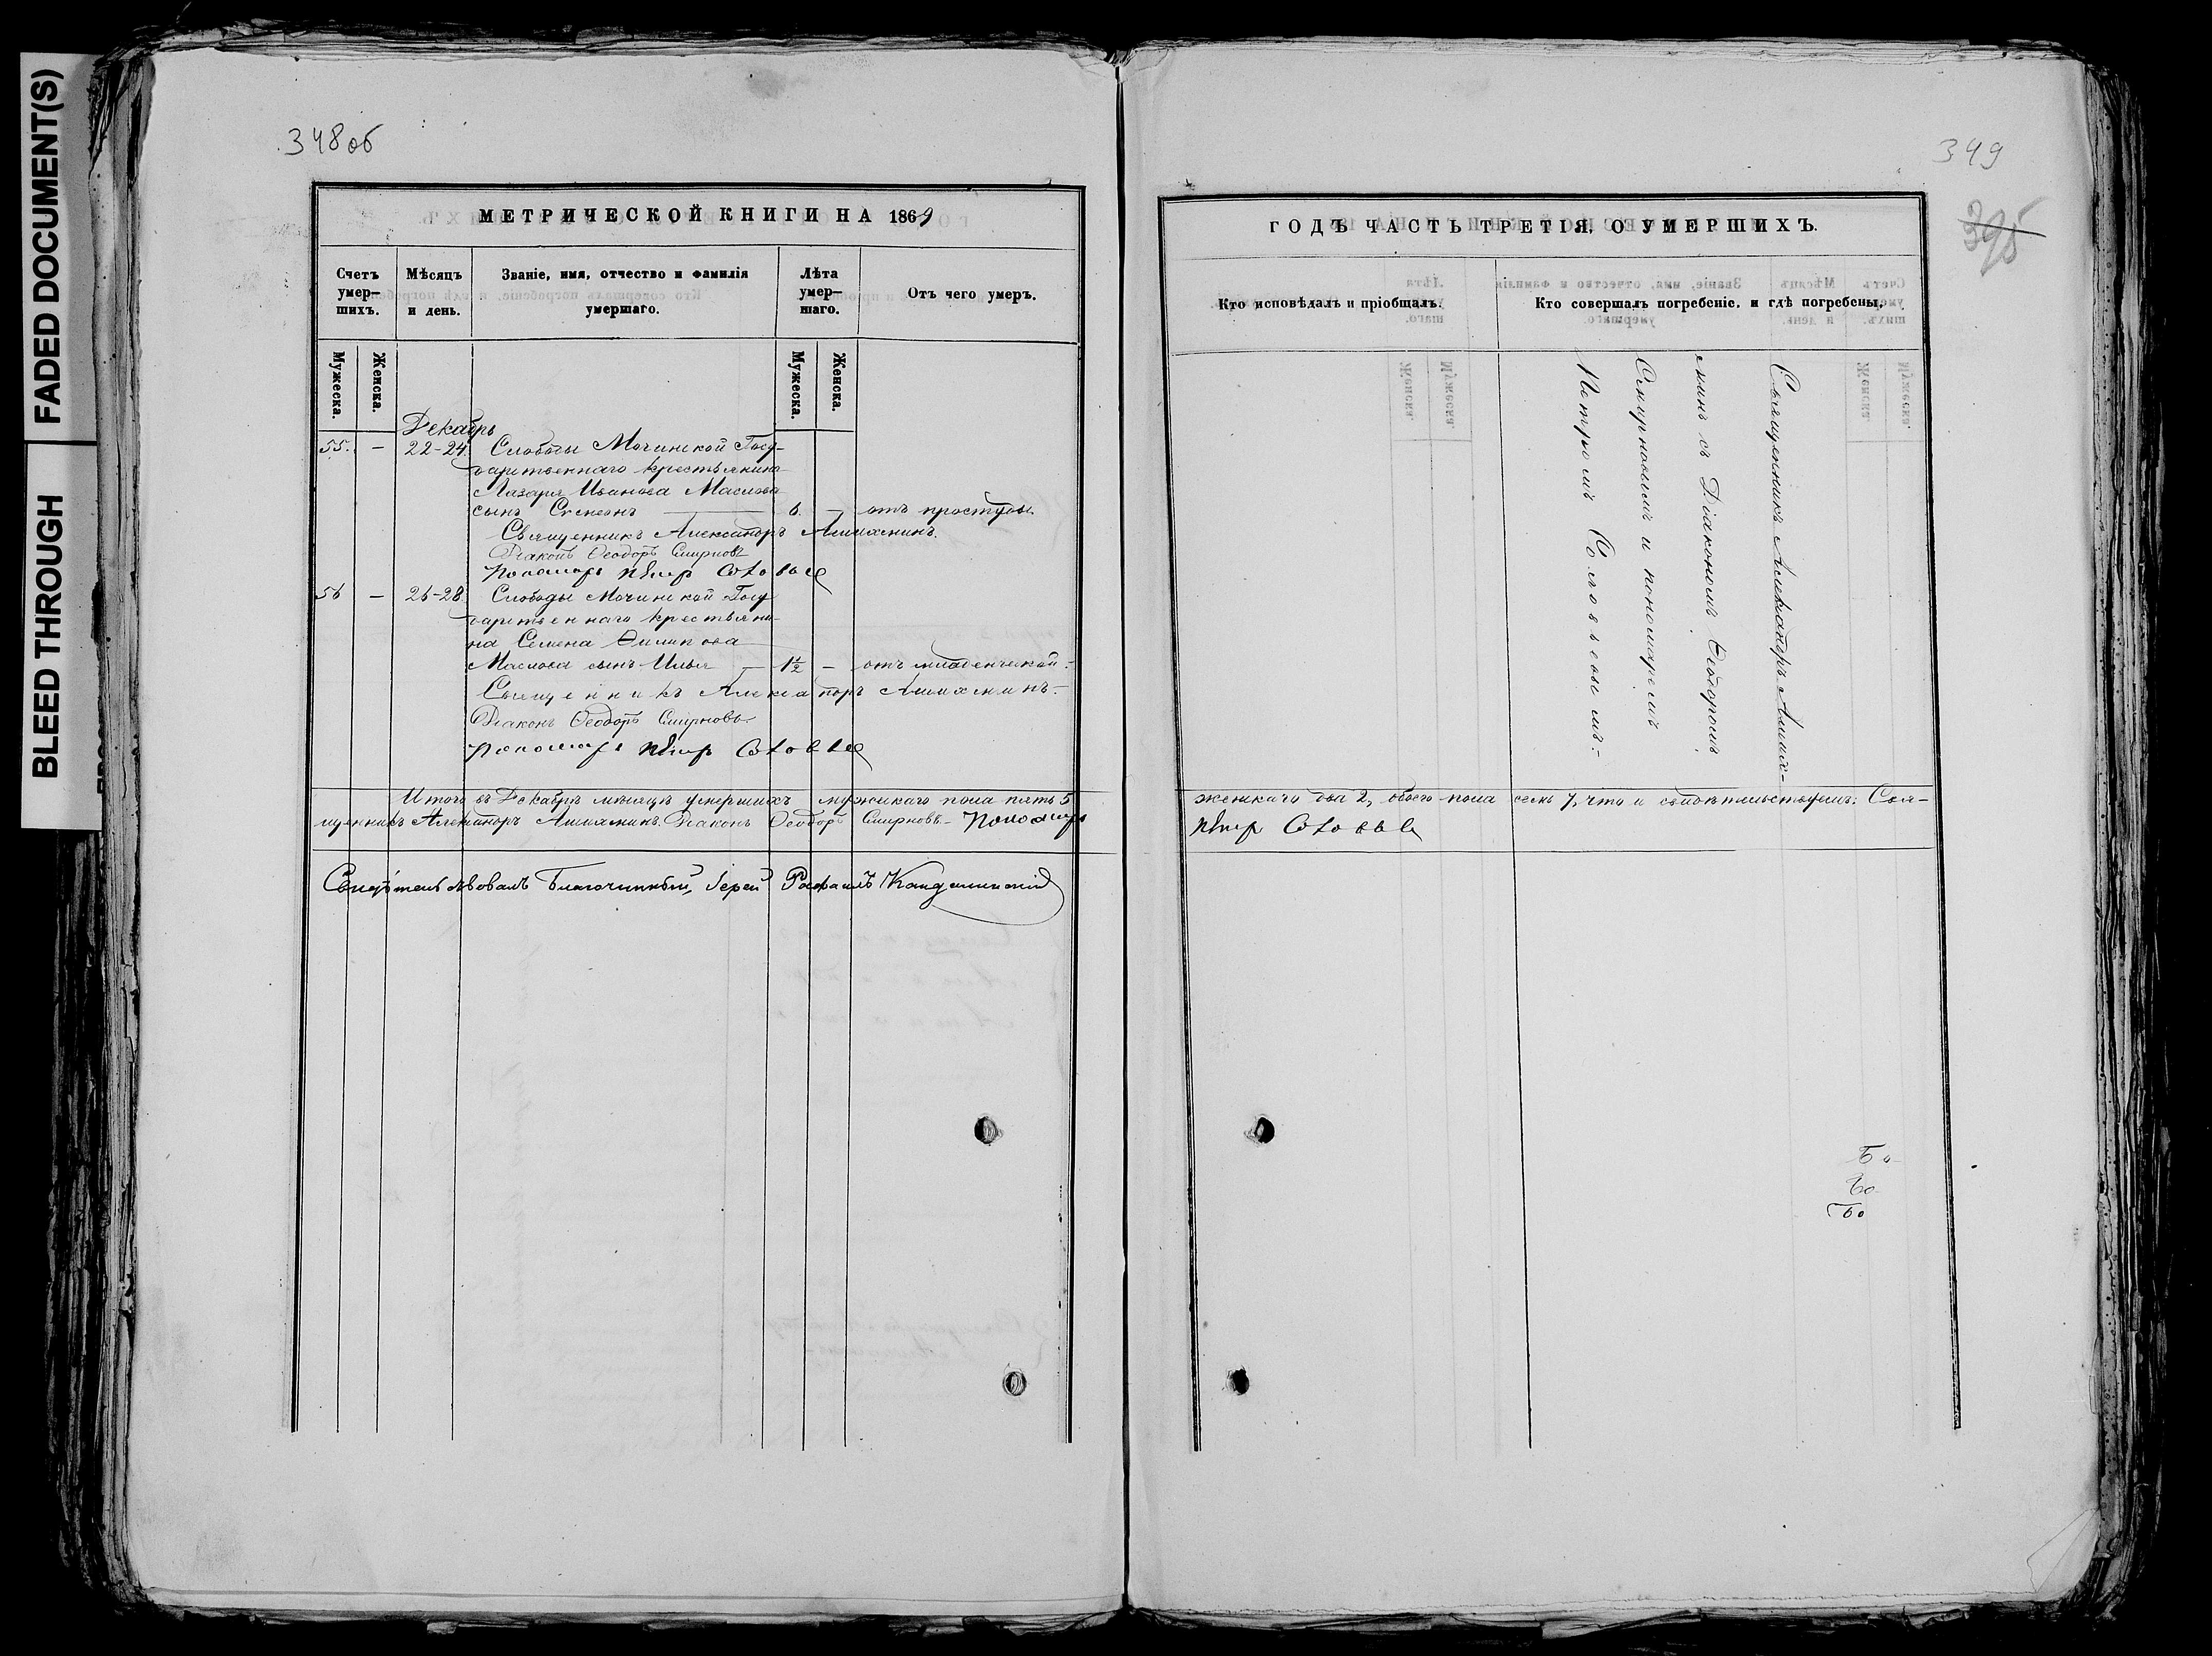 BLEED THROUGH
FADED DOCUMENT(S)
348об
МЕТРИЧЕСКОЙ КНИГИ НА 1869
Счетъ умер— шихъ.
Мѣсяцъ и день.
Званіе, имя, отчество и фамилія умершаго.
Лѣта умер— шаго.
Отъ чего умеръ.
Мужеска.
Женска.
Мужеска.
Женска.
Декабрь
55. — 22-24. Слободы Мочинской Госу-
дарственнаго крестьянина
Лазаря Иванова Маслова
сынъ Симеонъ — 6. — отъ простуды.
Священникъ Александръ
Діаконъ Ѳеодоръ Смирновъ
Пономарь Петръ Соловьев
56 — 26-28. Слободы Мочинской Госу
дарственнаго крестьяни-
на Семена Филипова
Маслова сынъ Илья — 1½ — отъ младенческой.
Священникъ Александръ
Діаконъ Ѳеодоръ Смирновъ.
Пономарь Петръ Соловьев
Итого въ Декабрѣ мѣсяцѣ умершихъ мужескаго пола пять 5
щенникъ Александръ Діаконъ Ѳеодоръ Смирновъ. Пономарь
Свидѣтельствовалъ Благочинный, Іерей Рафаилъ
349
395
ГОДЪ ЧАСТЬ ТРЕТІЯ, О УМЕРШИХЪ.
Кто исповѣдалъ и пріобщалъ.
Кто совершалъ погребеніе, и гдѣ погребены.
Священникъ Александръ
съ Діакономъ Ѳеодоромъ
Смирновымъ и пономаремъ
Петромъ Соловьевымъ.
женскаго два 2, обоего пола семь 7, что и свидѣтельствуемъ: Свя-
Петръ Соловьев